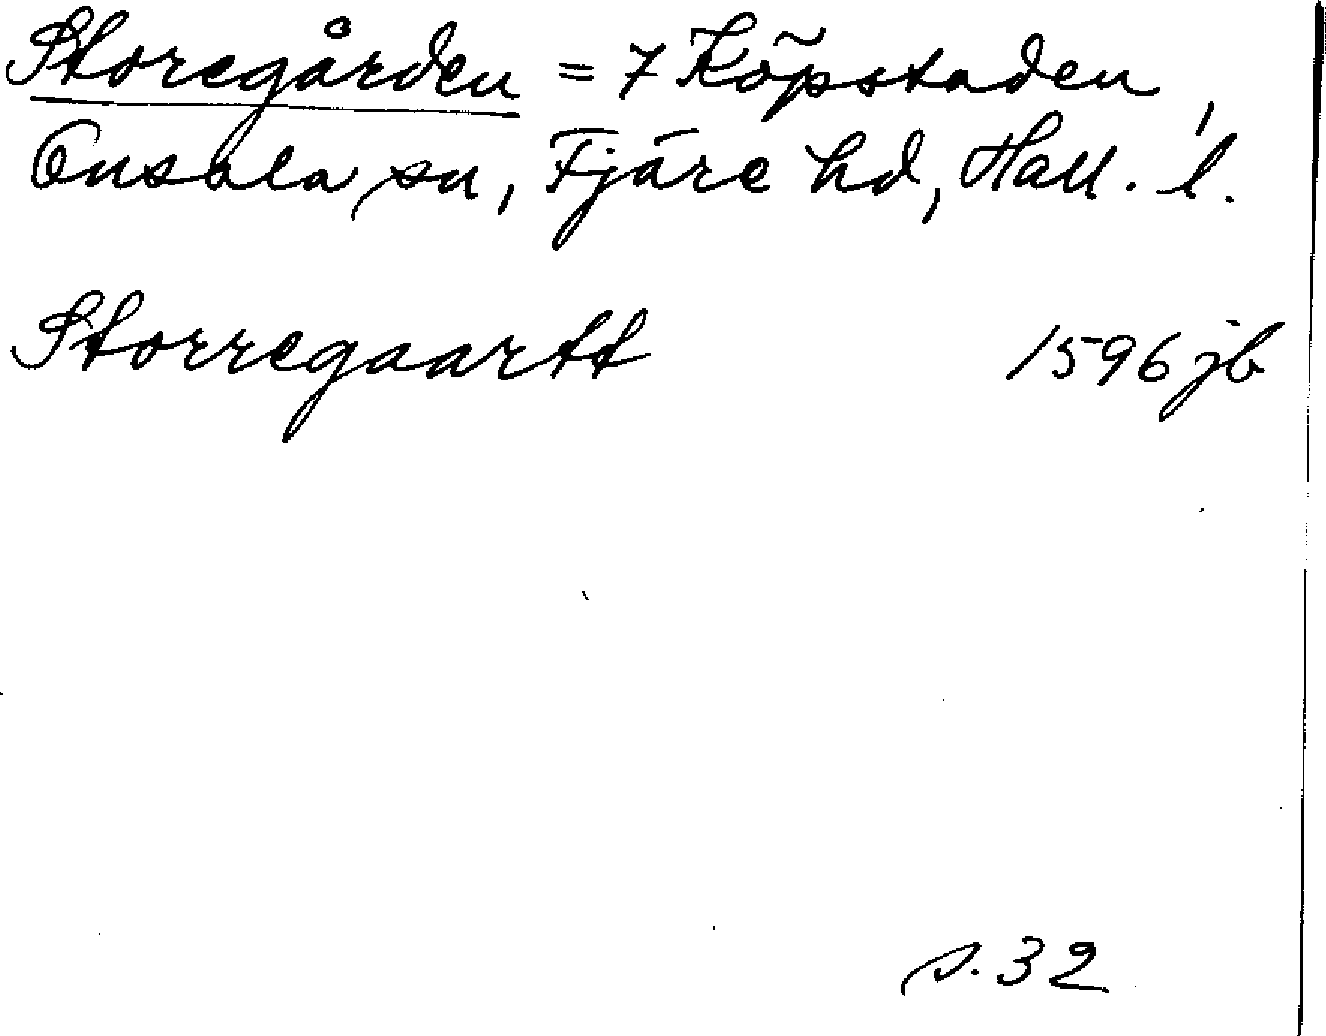 Storegården = 7 Köpstaden,
Onsala sn, Fjäre hd, Hall. l.
Storregaartt 1596 jb
s. 32